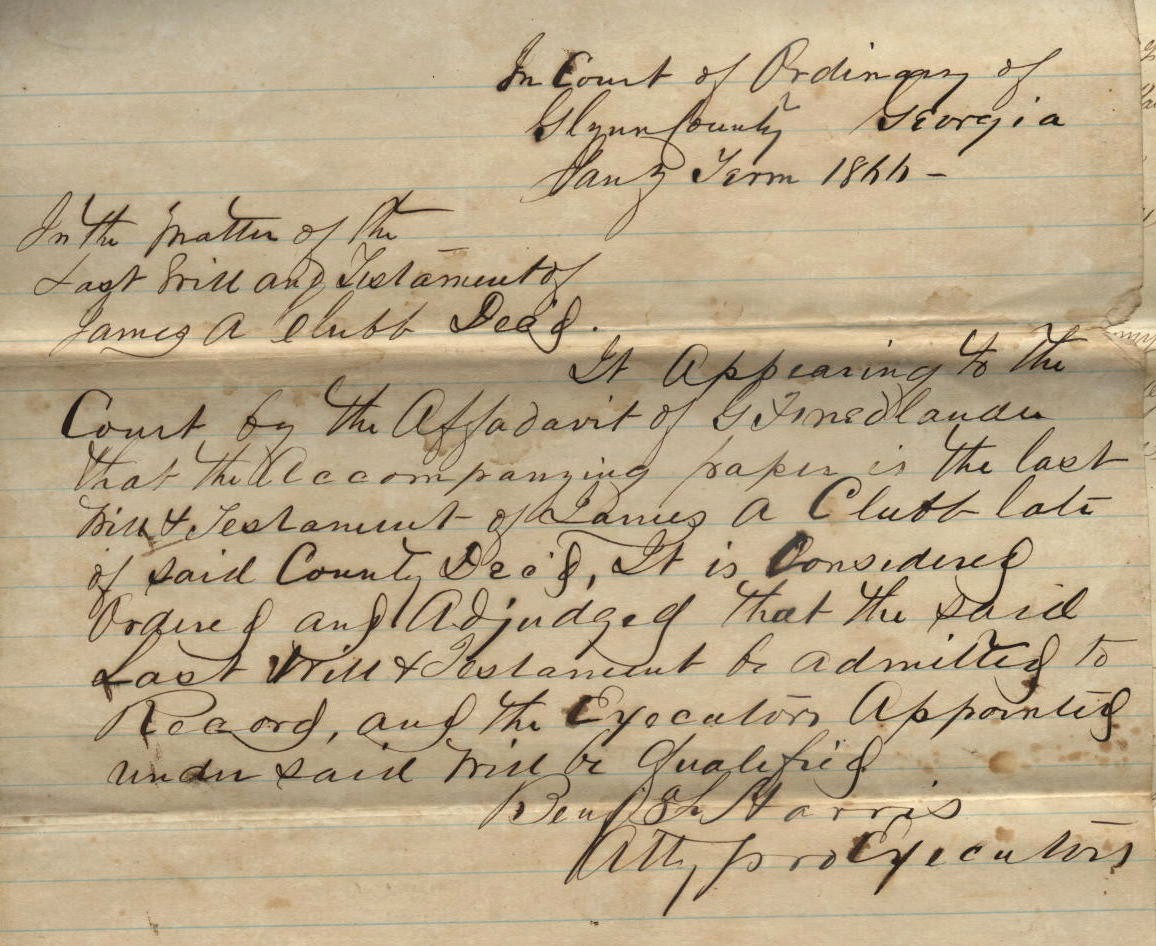 In Court of Ordinary of
Glynn County Georgia
Jany Term 1866 -
In the matter of the
Last Will and Testament of
James A Clubb Dec'd.
It Appearing to the
Court by the Affadavit of G Friedlander
that the Accompanying paper is the last
Will & Testament of James A Clubb late
of said County Dec'd, It is Considered
Ordered and Adjudged that the said
Last Will & Testament be admitted to
Record, and the Executors Appointed
under said Will be Qualified
Benj Harris
Atty pro Executors